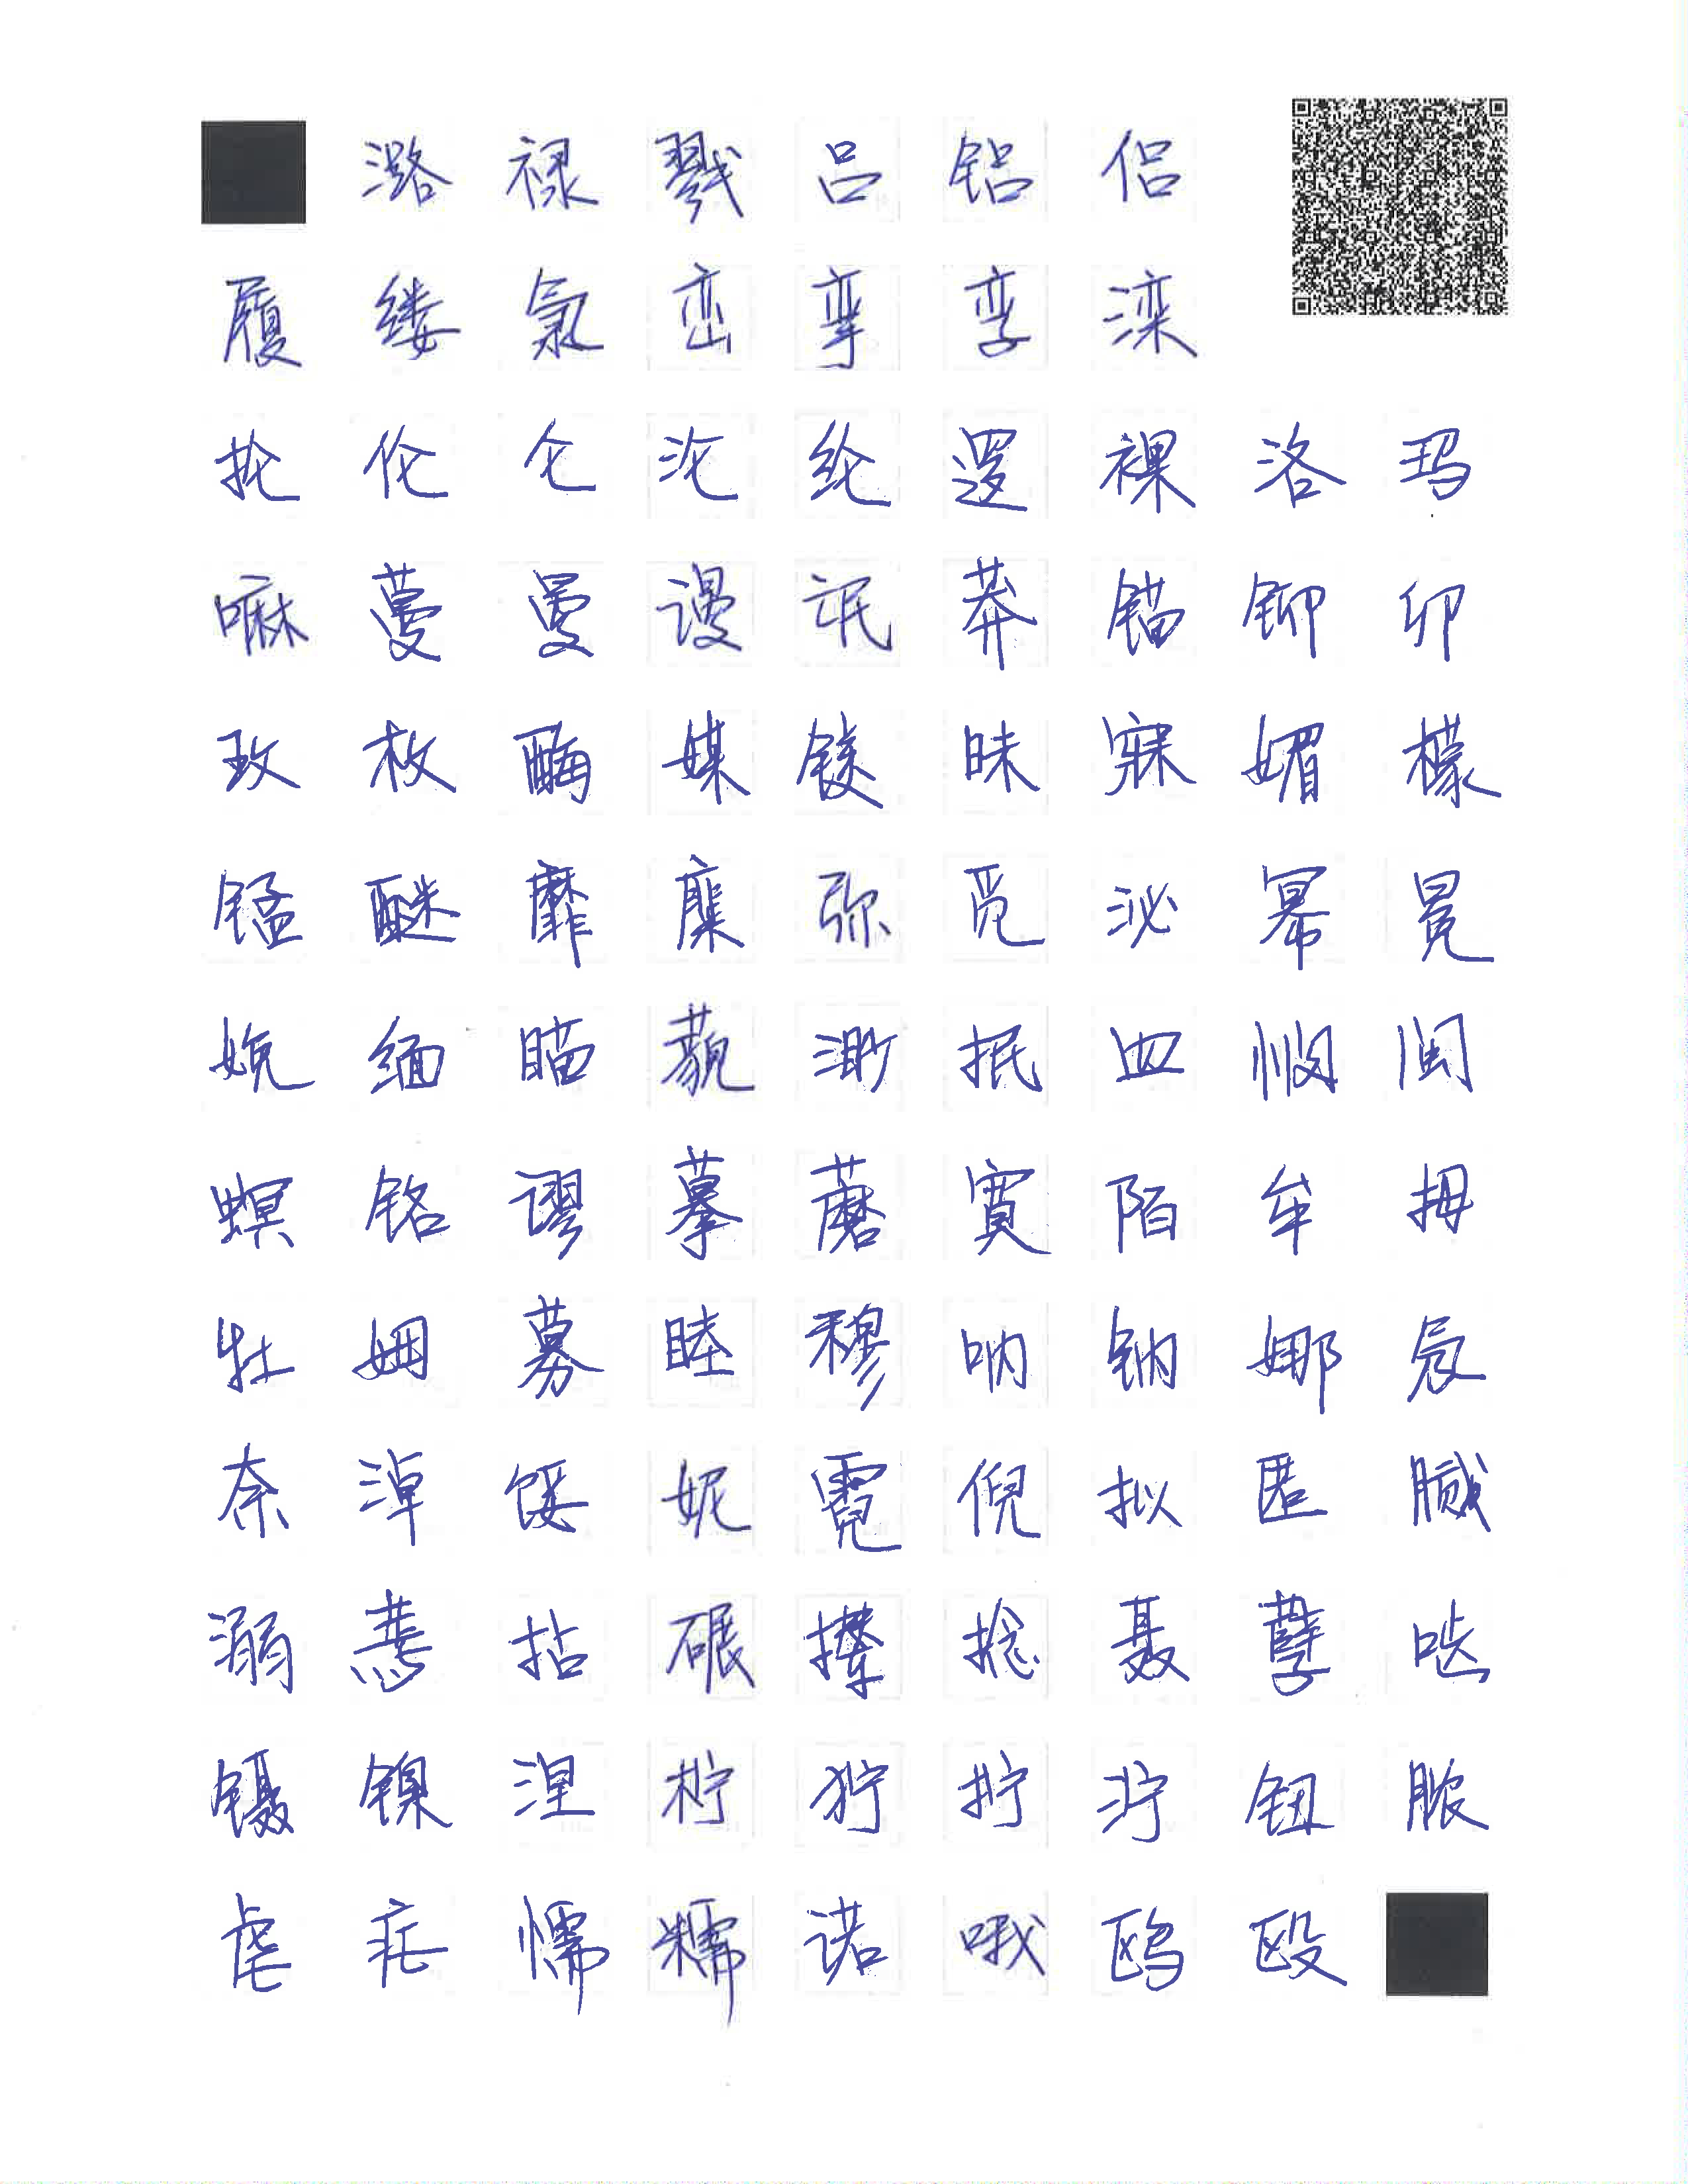 潞 禄 戮 吕 铝 侣
履 缕 氯 峦 挛 孪 滦
抡 伦 仑 沦 纶 逻 裸 洛 玛
嘛 蔓 曼 谩 氓 莽 锚 铆 卯
玫 枚 酶 媒 镁 昧 寐 媚 檬
锰 醚 靡 糜 弥 觅 泌 幂 冕
娩 缅 瞄 藐 渺 抿 皿 悯 闽
螟 铭 谬 摹 蘑 寞 陌 牟 拇
牡 姆 募 睦 穆 呐 钠 娜 氖
奈 淖 馁 妮 霓 倪 拟 匿 腻
溺 蔫 拈 碾 撵 捻 聂 孽 啮
镊 镍 涅 柠 狞 拧 泞 钮 脓
虐 疟 懦 糯 诺 哦 鸥 殴